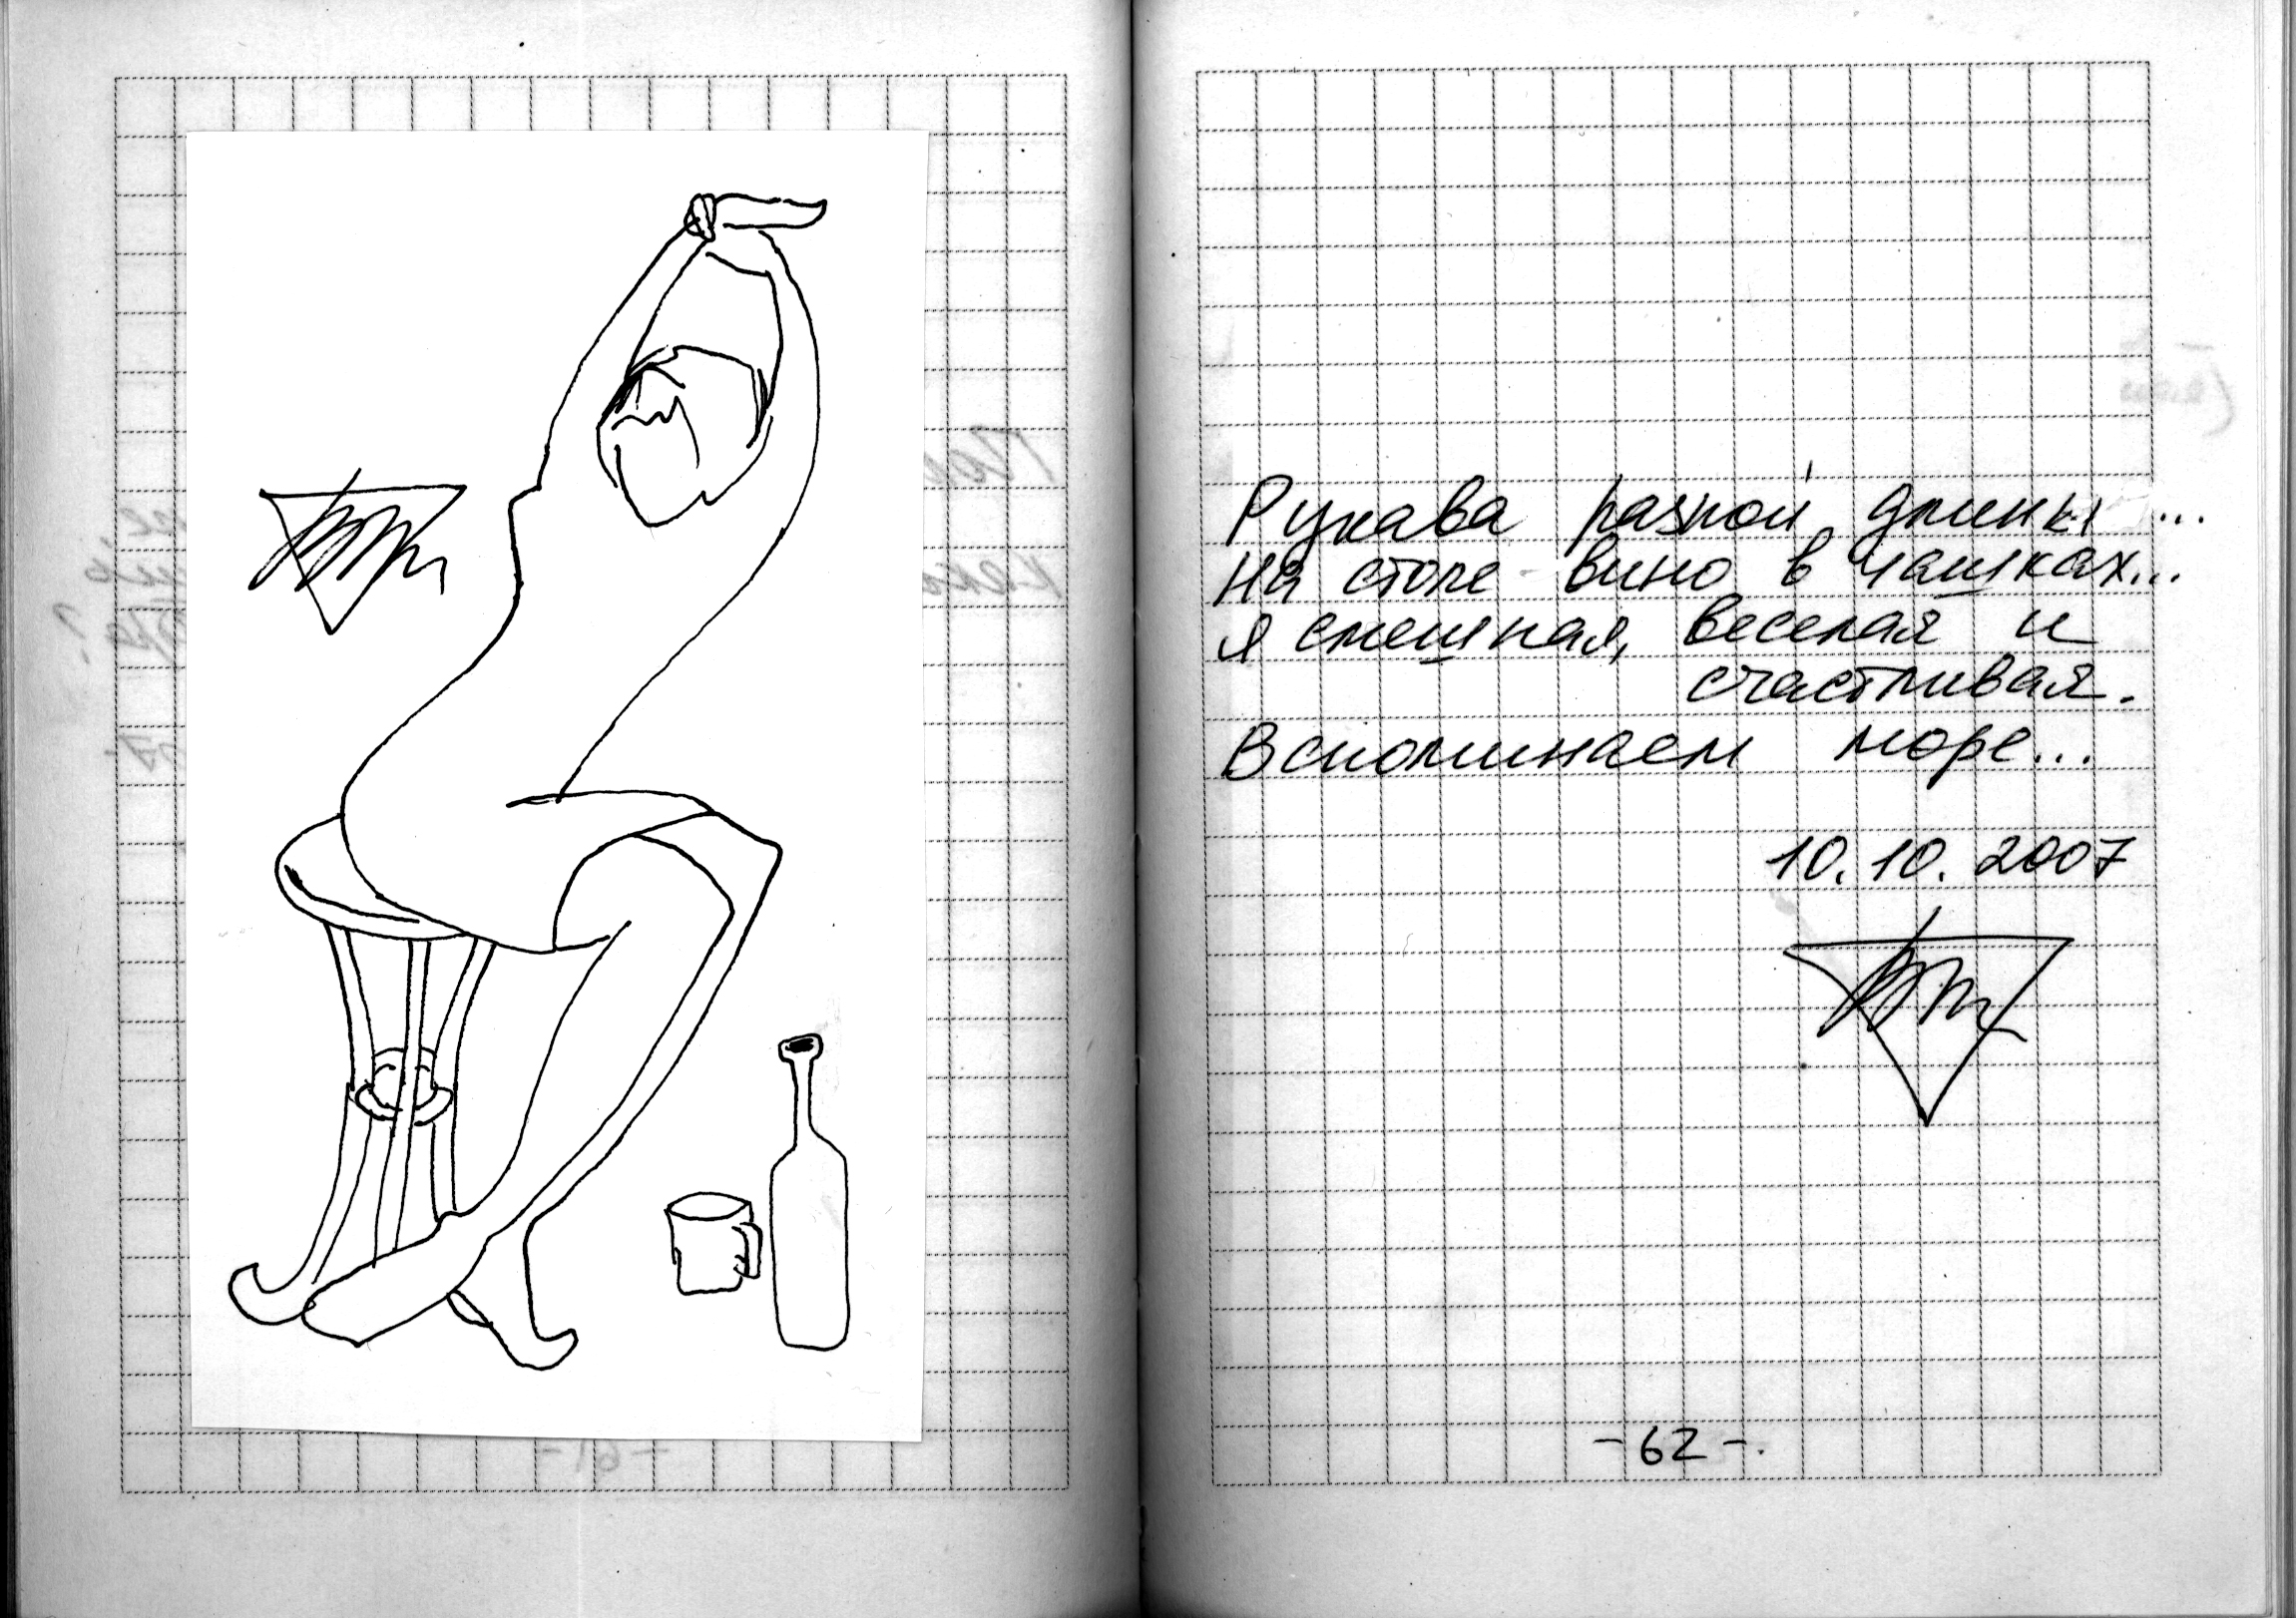 Рукава разной длины...
на столе вино в чашках...
я смешная, веселая и
счастливая.
Вспоминаем море...
10.10.2007
-62-.